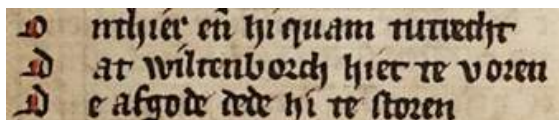 O nthier en̄ hi quam tutrecht
D at wiltenborch hiet te voren
D e afgode dede hi te storen